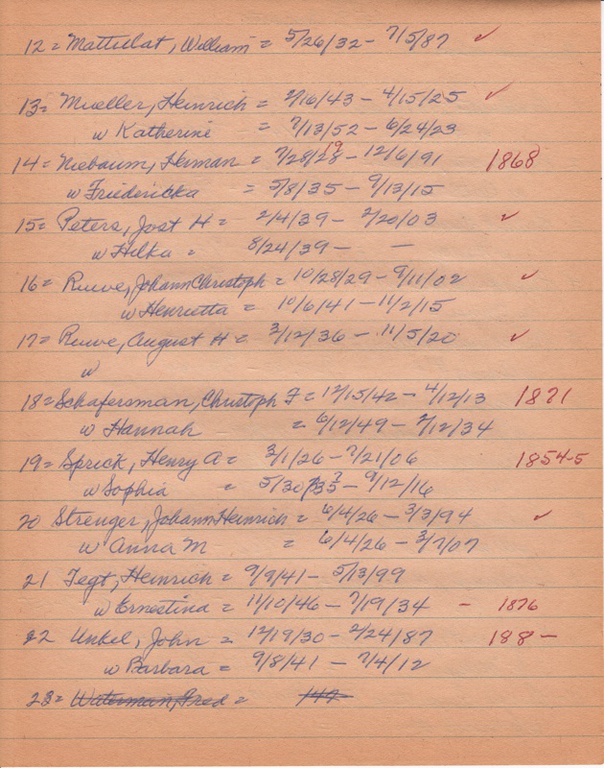 12 = Mattulat, William = 5/26/32 - 7/5/87 ✓
13 = Mueller, Heinrich = 2/16/43 - 4/15/25 ✓
w Katherine = 7/13/52 - 6/24/23
14 = Niebaum, Herman = 7/28/28 19 - 12/6/91 1868
w Friedericka = 5/8/35 - 9/13/15
15 = Peters, Jost H = 2/4/39 - 2/20/03 ✓
w Hilka = 8/24/39 - -
16 = Ruwe, Johann Christoph = 10/28/29 - 9/11/02 ✓
w Henrietta = 10/6/41 - 11/2/15
17 = Ruwe, August H = 3/12/36 - 11/5/20 ✓
w
18 = Schafersman, Christoph F = 12/15/42 - 4/12/13 1871
w Hannah = 6/12/49 - 2/12/34
19 = Sprick, Henry A = 3/1/26 - 7/21/06 1854-5
w Sophia = 5/30/35 ? - 9/12/16
20 Strenger, Johann Heinrich = 6/4/26 - 3/3/94 ✓
w Anna M = 6/4/26 - 3/7/07
21 Tegt, Heinrich = 9/9/41 - 5/13/99
w Ernestina = 11/10/46 - 7/19/34 - 1876
22 Unkel, John = 12/19/30 - 2/24/87 188-
w Barbara = 9/8/41 - 7/4/12
23 = Waterman, Fred =